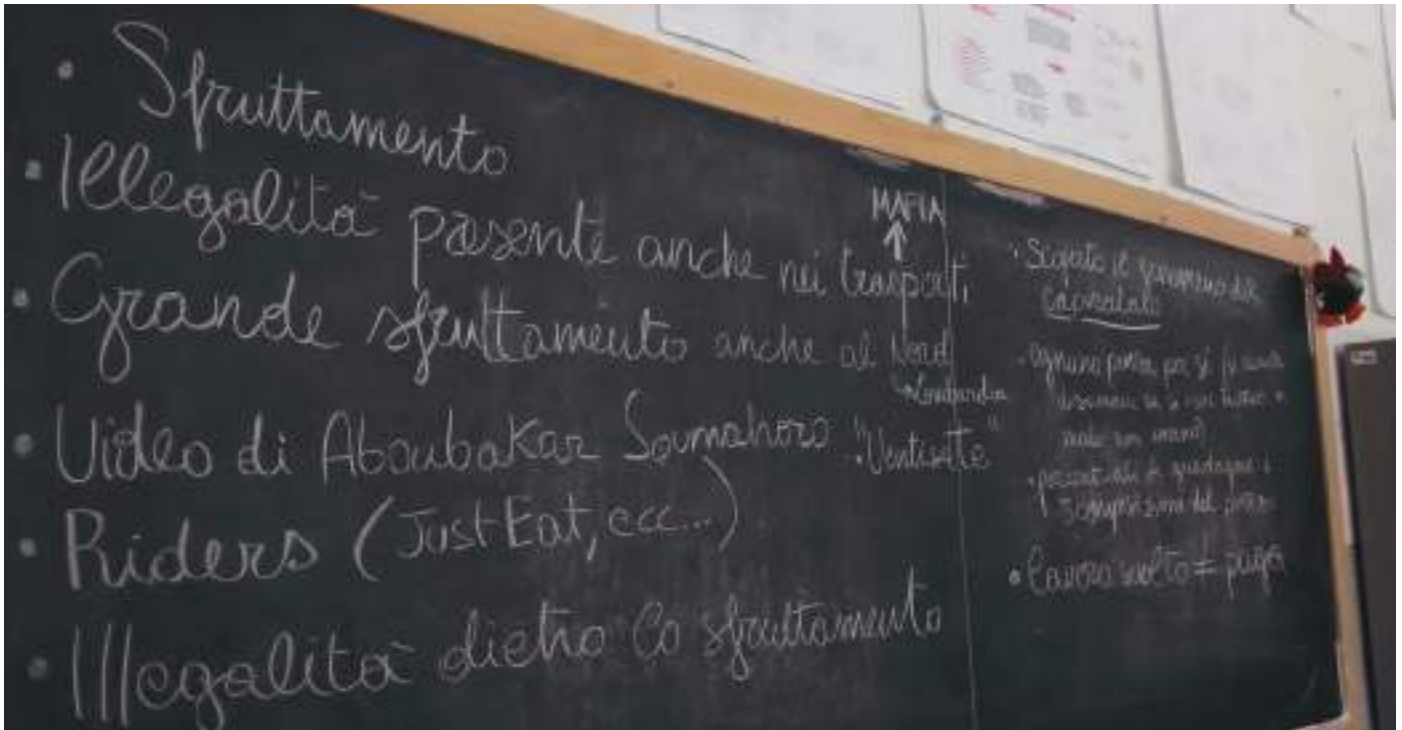 • Sfruttamento
• Illegalità presente anche nei trasporti
MAFIA
↑
• Grande sfruttamento anche al Nord
Lombardia
• Video di Aboubakar Soumahoro
"Ventisette"
• Riders (Just Eat, ecc...)
• Illegalità dietro lo sfruttamento
• il fenomeno del
caporalato
• ognuno per sé
• di guadagno
• lavoro svolto ≠ paga